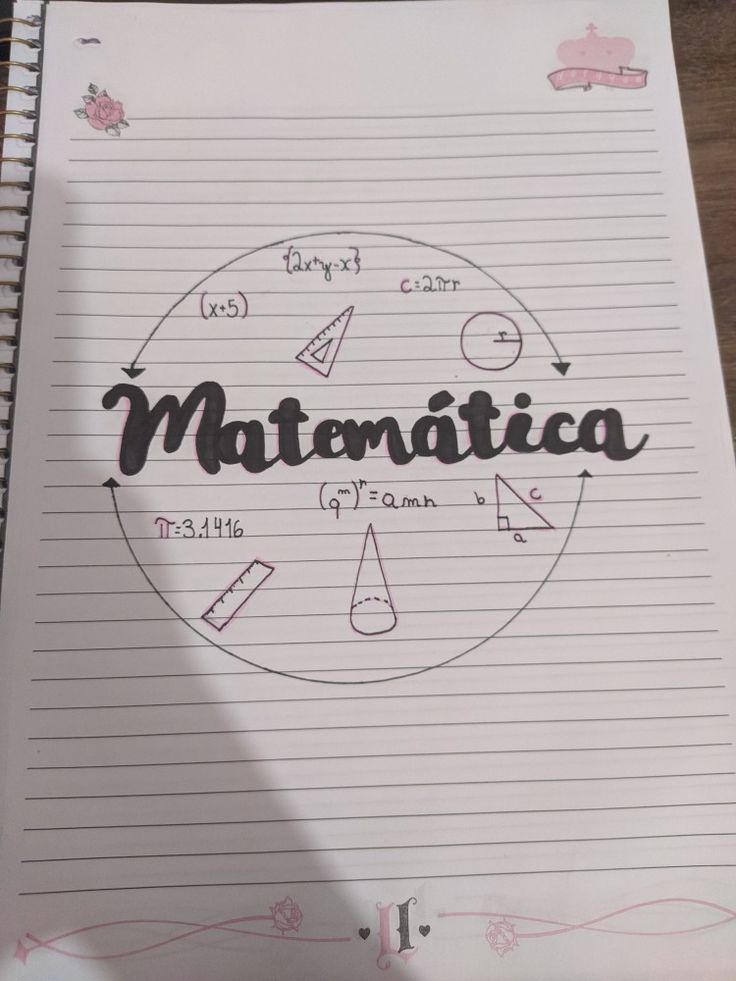 {2x+y-x}
(x+5)
c=2πr
r
Matemática
(q^m)^n = amn
b
c
a
π=3.1416